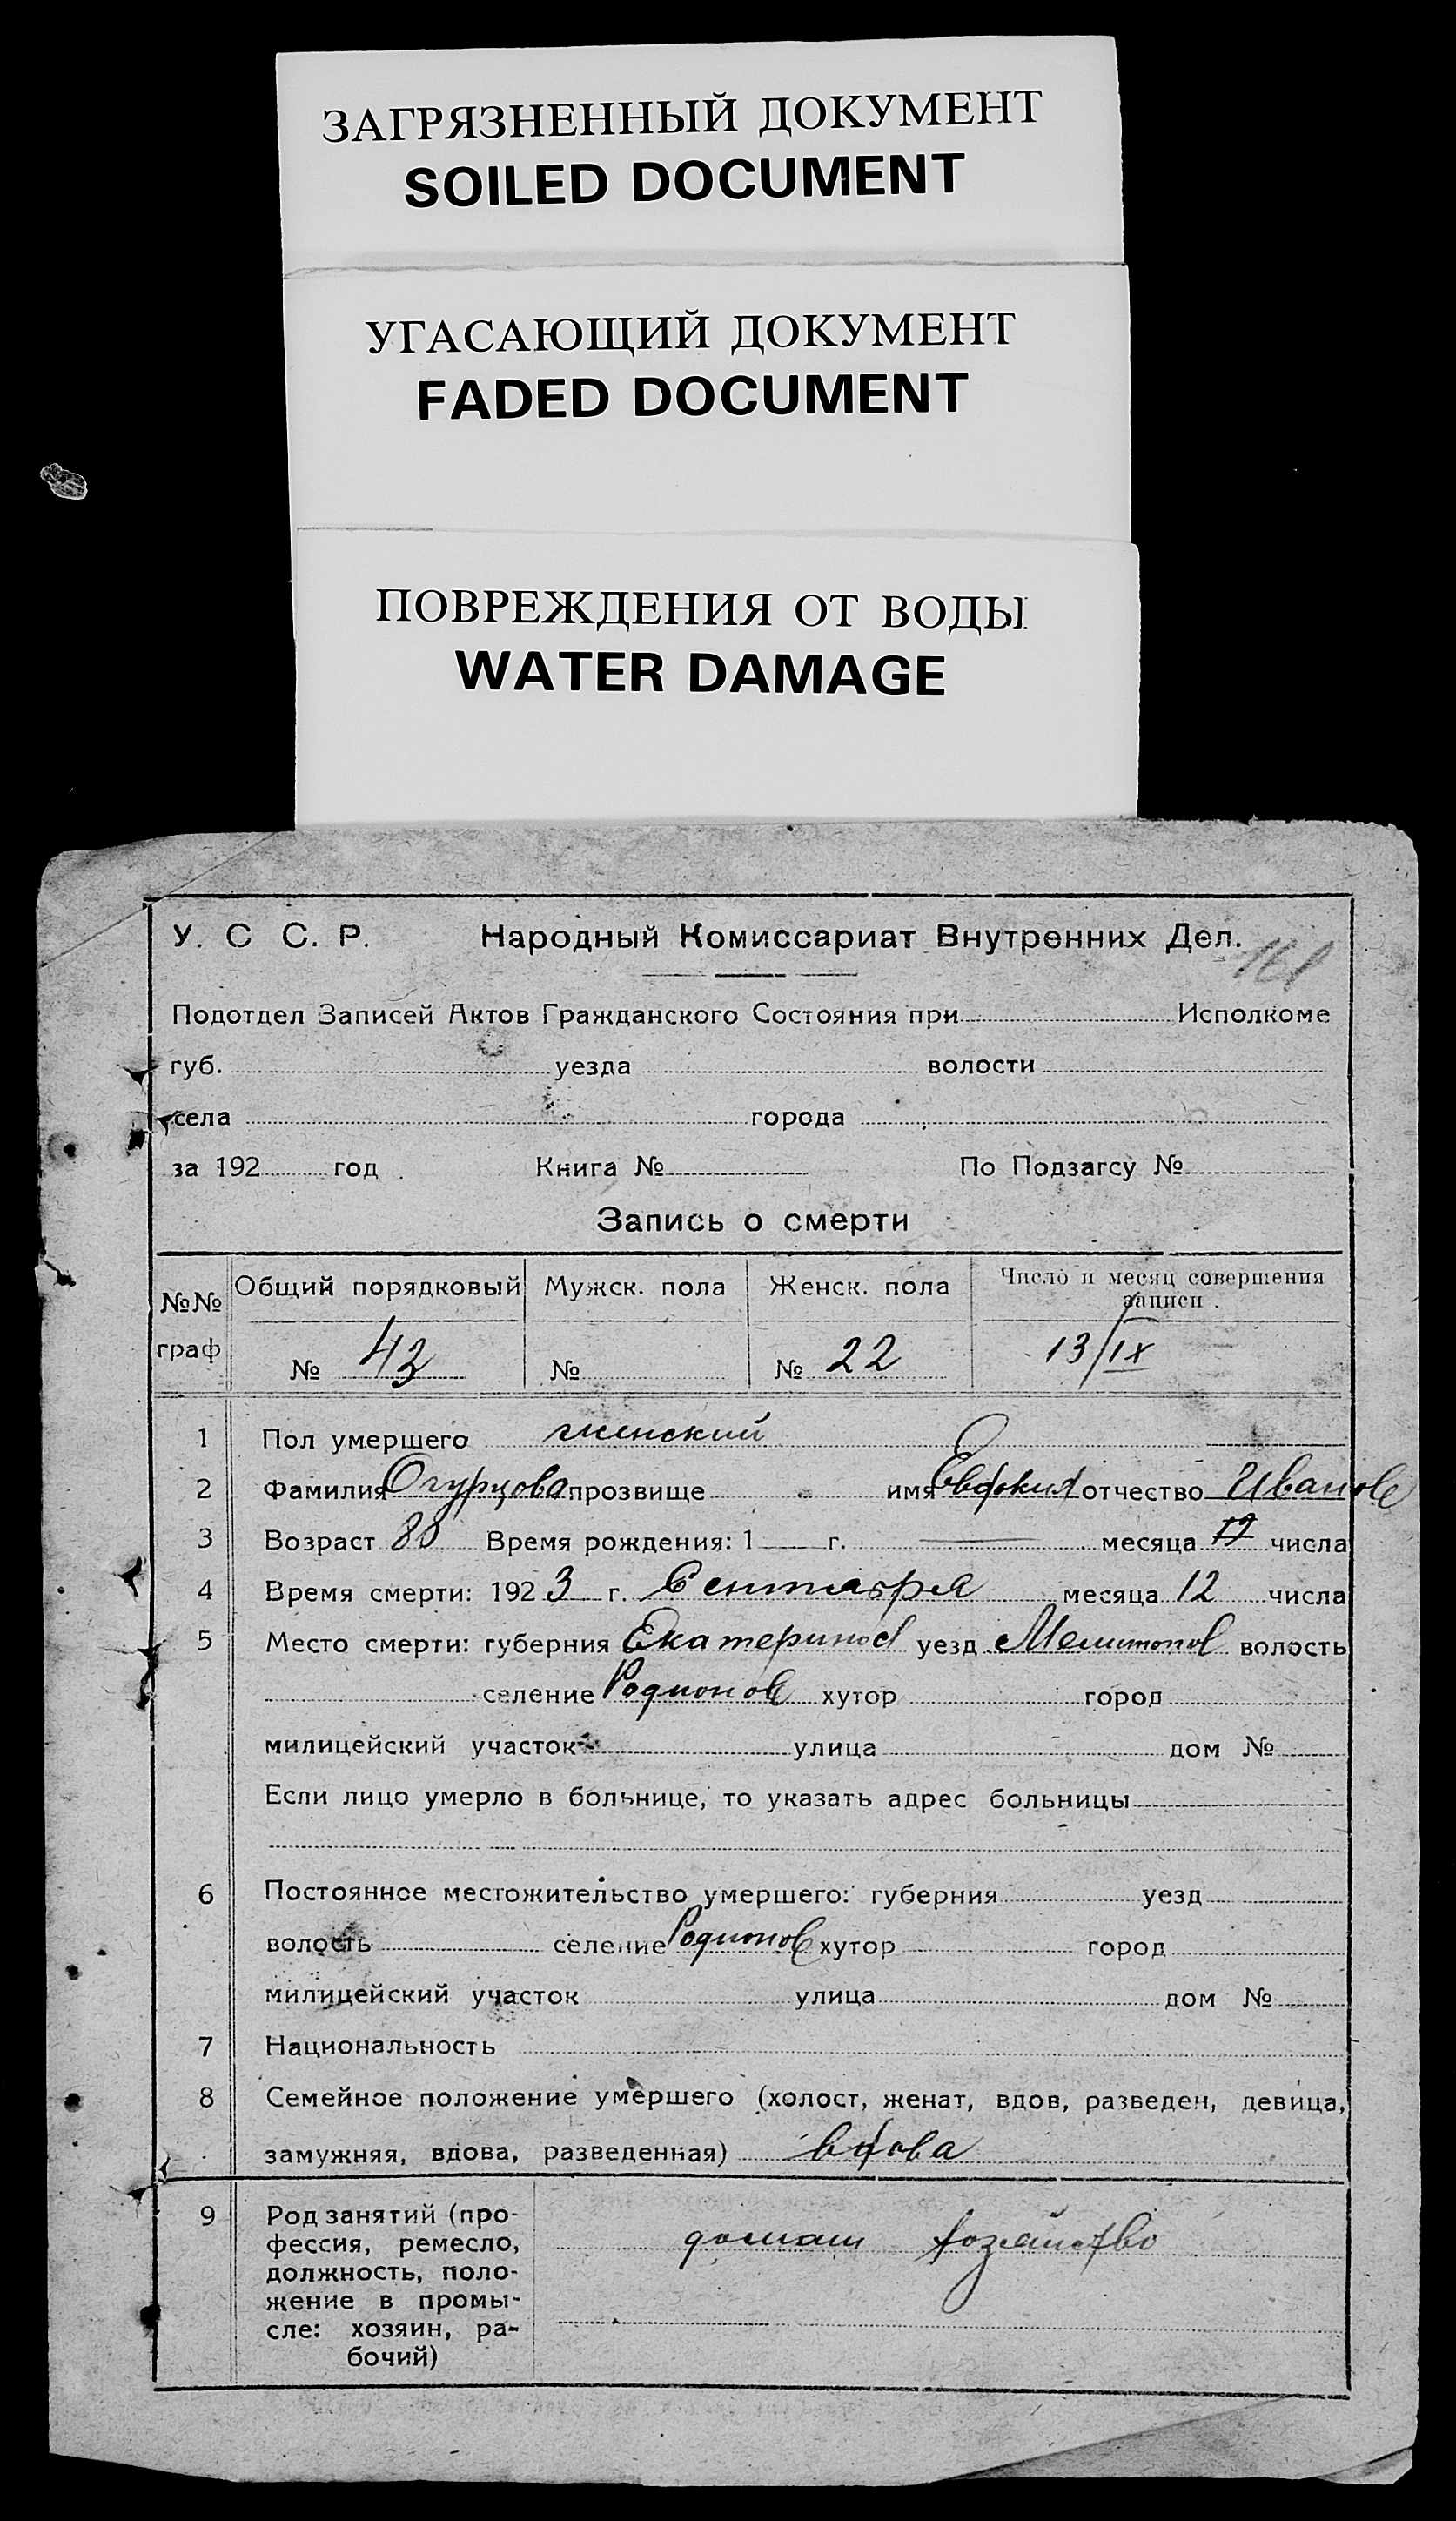 ЗАГРЯЗНЕННЫЙ ДОКУМЕНТ
SOILED DOCUMENT
УГАСАЮЩИЙ ДОКУМЕНТ
FADED DOCUMENT
ПОВРЕЖДЕНИЯ ОТ ВОДЫ
WATER DAMAGE
У. С С. Р. Народный Комиссариат Внутренних Дел.
Подотдел Записей Актов Гражданского Состояния при Исполкоме
губ. уезда волости
села города
за 192 год Книга № По Подзагсу №
Запись о смерти
№№ граф Общий порядковый Мужск. пола Женск. пола Число и месяц совершения записи
№ 43 № № 22 13/IX
1 Пол умершего женский
2 Фамилия Огурцова прозвище имя Евдокия отчество Иванов
3 Возраст 80 Время рождения: 1 г. месяца числа
4 Время смерти: 1923 г. Сентября месяца 12 числа
5 Место смерти: губерния Екатеринос уезд Мелитопол волость
селение Родионов хутор город
милицейский участок улица дом №
Если лицо умерло в больнице, то указать адрес больницы
6 Постоянное местожительство умершего: губерния уезд
волость селение Родионов хутор город
милицейский участок улица дом №
7 Национальность
8 Семейное положение умершего (холост, женат, вдов, разведен, девица,
замужняя, вдова, разведенная) вдова
9 Род занятий (про-
фессия, ремесло,
должность, поло-
жение в промы-
сле: хозяин, ра-
бочий)
домаш хозяйство